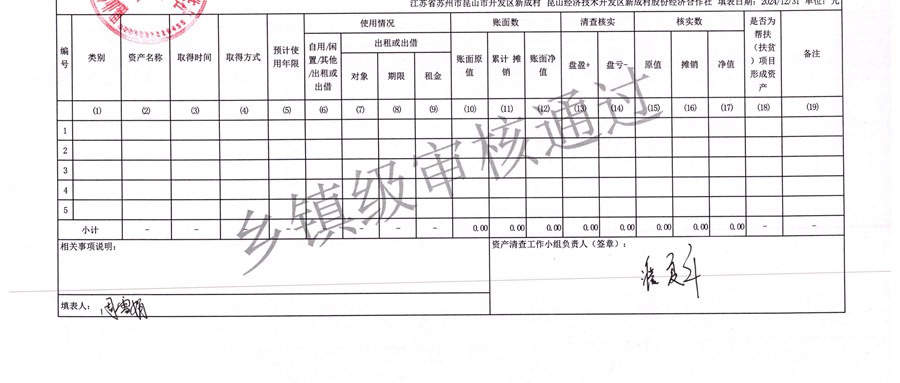 江苏省苏州市昆山市开发区新成村 昆山经济技术开发区新成村股份经济合作社 填表日期：2024/12/31 单位：元
编号 类别 资产名称 取得时间 取得方式 预计使用年限 使用情况 账面数 清查核实 核实数 是否为帮扶（扶贫）项目形成资产 备注
自用/闲置/其他/出租或出借 出租或出借 账面原值 累计摊销 账面净值 盘盈+ 盘亏- 原值 摊销 净值
对象 期限 租金
(1) (2) (3) (4) (5) (6) (7) (8) (9) (10) (11) (12) (13) (14) (15) (16) (17) (18) (19)
1
2
3
4
5
小计 - - - - - - - - 0.00 0.00 0.00 0.00 0.00 0.00 0.00 0.00 - -
乡镇级审核通过
相关事项说明： 资产清查工作小组负责人（签章）：
填表人：